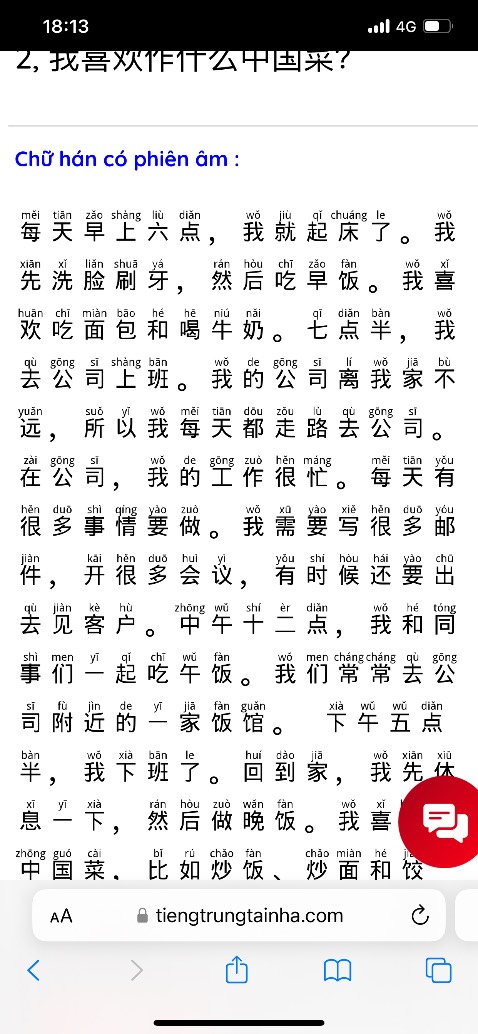 18:13
4G
2, 我喜欢作什么中国菜?
Chữ hán có phiên âm :
měi tiān zǎo shàng liù diǎn wǒ jiù qǐ chuáng le wǒ
每天早上六点，我就起床了。我
xiān xǐ liǎn shuā yá rán hòu chī zǎo fàn wǒ xǐ
先洗脸刷牙，然后吃早饭。我喜
huān chī miàn bāo hé hē niú nǎi qī diǎn bàn wǒ
欢吃面包和喝牛奶。七点半，我
qù gōng sī shàng bān wǒ de gōng sī lí wǒ jiā bù
去公司上班。我的公司离我家不
yuǎn suǒ yǐ wǒ měi tiān dōu zǒu lù qù gōng sī
远，所以我每天都走路去公司。
zài gōng sī wǒ de gōng zuò hěn máng měi tiān yǒu
在公司，我的工作很忙。每天有
hěn duō shì qíng yào zuò wǒ xū yào xiě hěn duō yóu
很多事情要做。我需要写很多邮
jiàn kāi hěn duō huì yì yǒu shí hòu hái yào chū
件，开很多会议，有时候还要出
qù jiàn kè hù zhōng wǔ shí èr diǎn wǒ hé tóng
去见客户。中午十二点，我和同
shì men yī qǐ chī wǔ fàn wǒ men cháng cháng qù gōng
事们一起吃午饭。我们常常去公
sī fù jìn de yī jiā fàn guǎn xià wǔ wǔ diǎn
司附近的一家饭馆。下午五点
bàn wǒ xià bān le huí dào jiā wǒ xiān xiū
半，我下班了。回到家，我先休
xī yī xià rán hòu zuò wǎn fàn wǒ xǐ
息一下，然后做晚饭。我喜
zhōng guó cài bǐ rú chǎo fàn chǎo miàn hé
中国菜，比如炒饭、炒面和饺
AA tiengtrungtainha.com